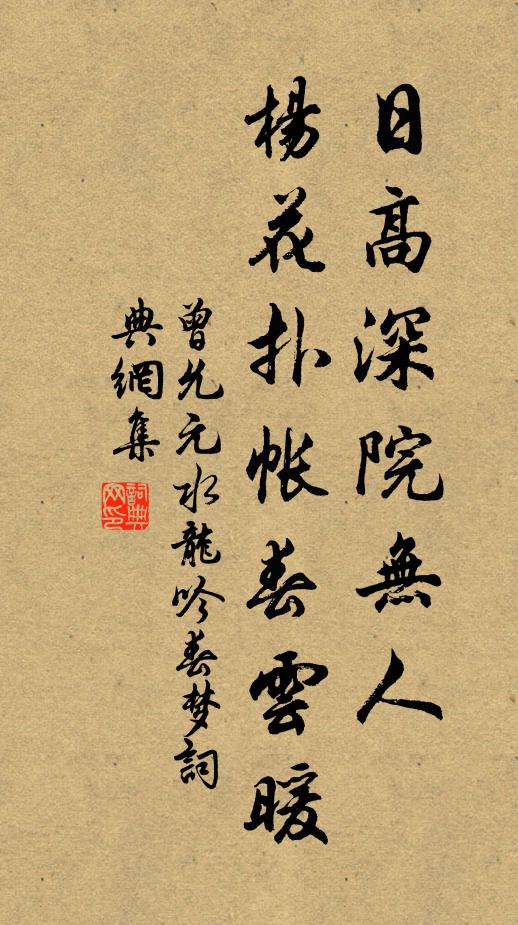 日高深院無人
楊花扑帐春雲暖
曾允元水龍吟春梦詞
典網集
詞典网印